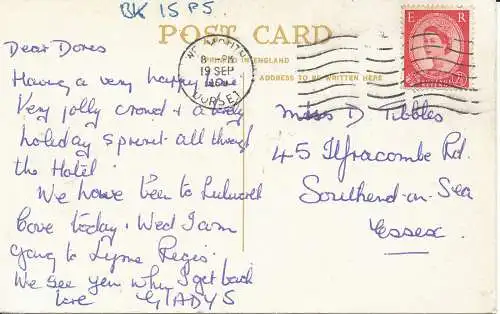 BK 15 P5.
POST CARD
PRINTED IN ENGLAND
ADDRESS TO BE WRITTEN HERE
8 - PM
19 SEP
DORSET
E R
Dear Dores
Having a very happy time
Very jolly crowd + a
holiday spirit all through
the Hotel.
We have been to Lulworth
Cove today, Wed I am
going to Lyme Regis.
We see you when I get back
love GLADYS
Miss D Tibbles
45 Ilfracombe Rd.
Southend-on-Sea
Essex.